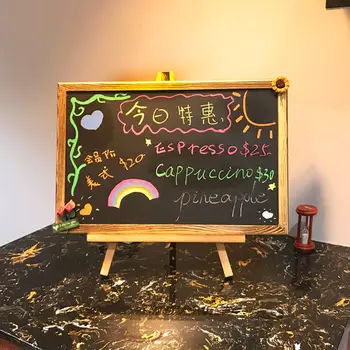 今日特惠
Espresso $25
Cappuccino $30
pineapple
美式 $20